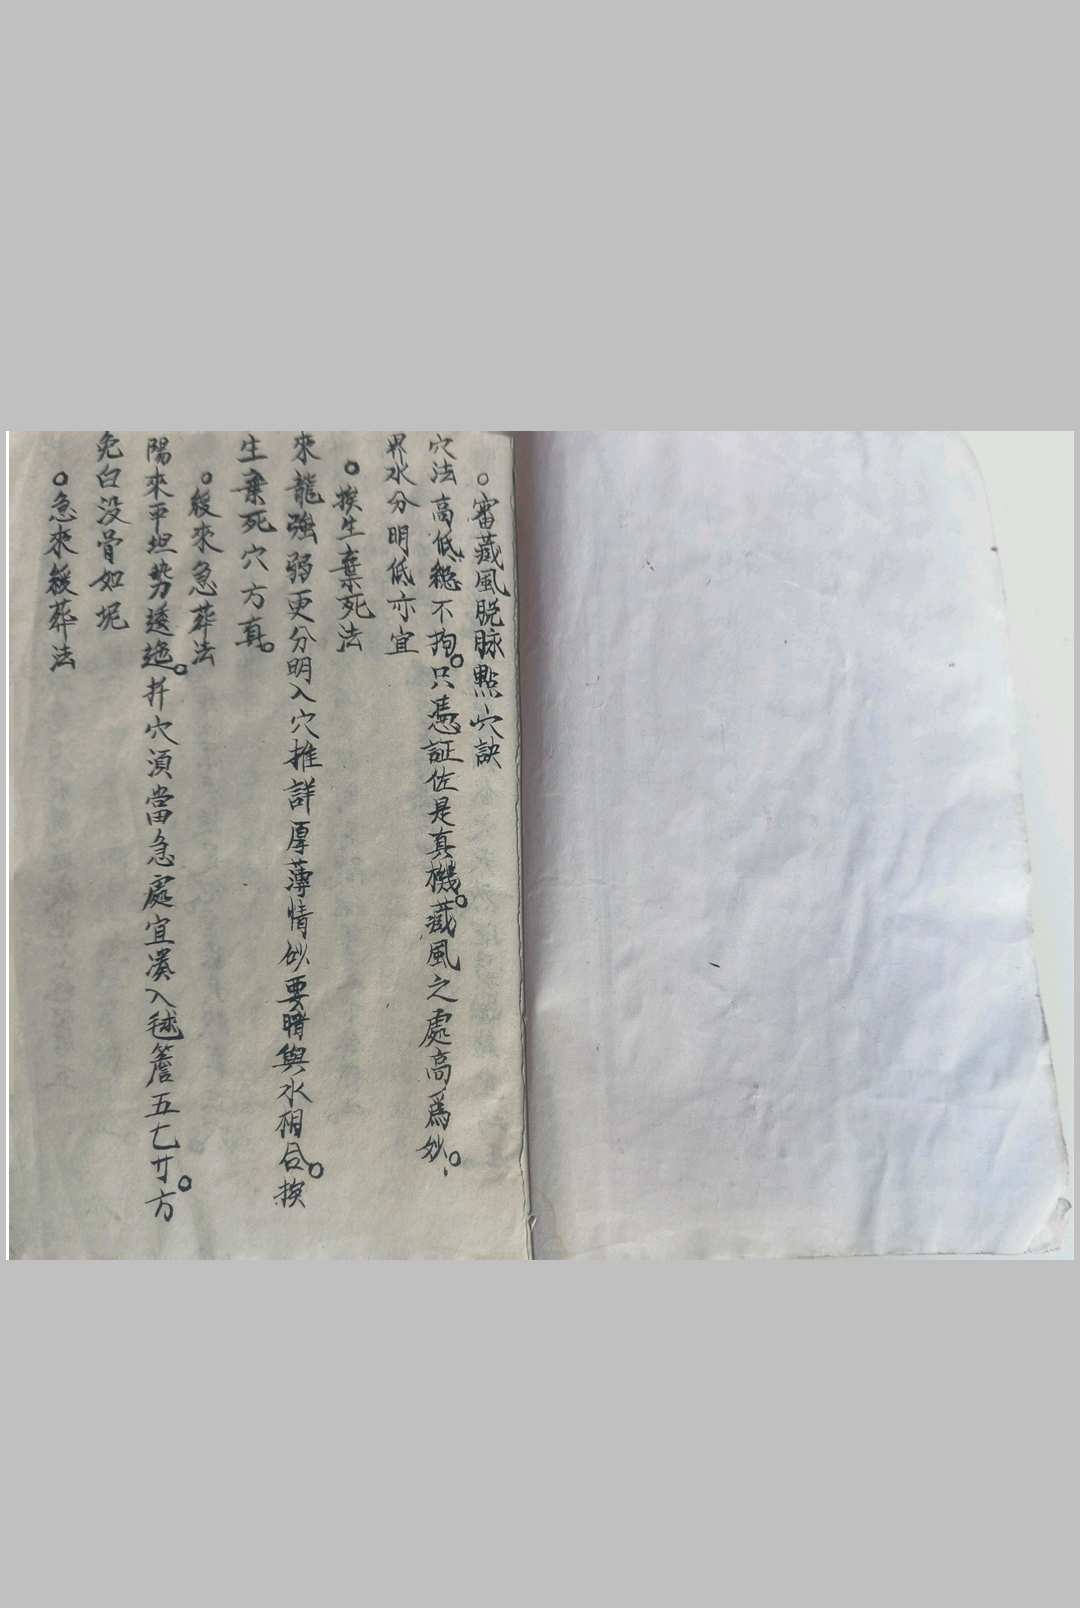 ○審藏風脱脉點穴訣
穴法高低總不拘○只憑証佐是真機○藏風之處高爲妙○
界水分明低亦宜
○挨生棄死法
來龍強弱更分明入穴推詳厚薄情砂要暗與水相合○挨
生棄死穴方真○
○緩來急葬法
陽來平坦勢逶迤○扦穴須當急處宜湊入毬簷五七寸○方
免白没骨如坭
○急來緩葬法